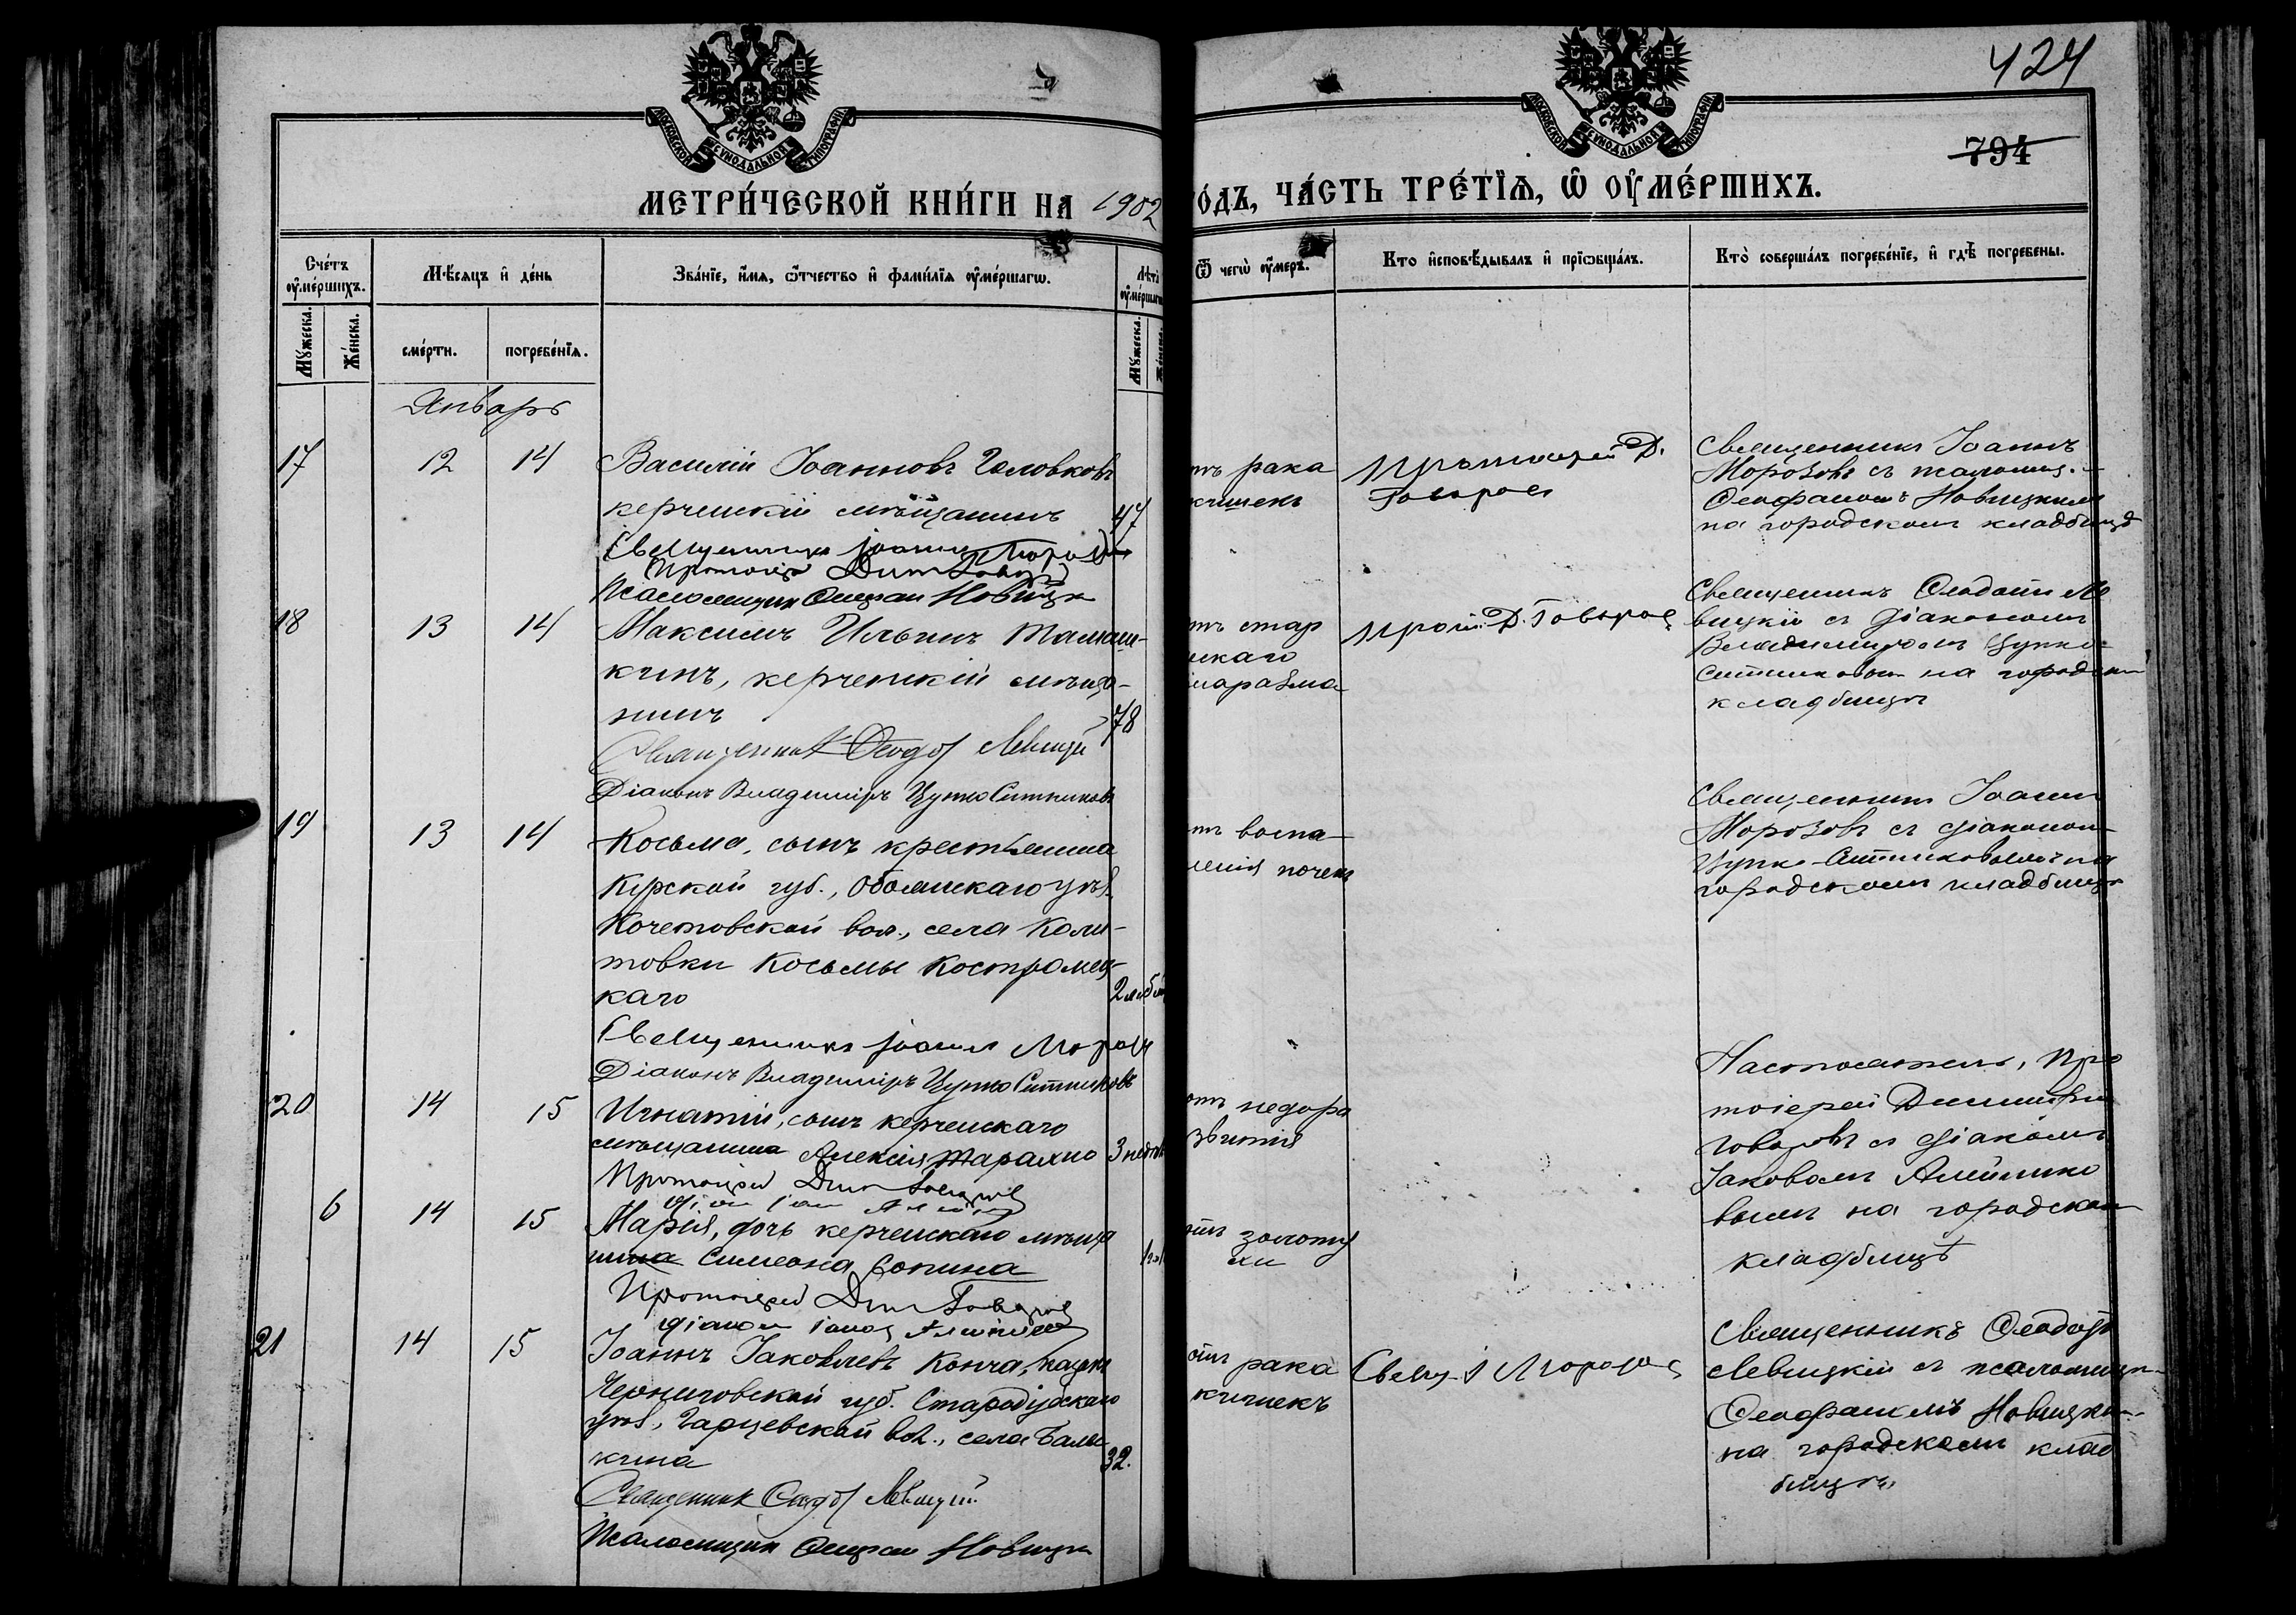 424
794
МОСКОВСКОЙ СУНОДАЛЬНОЙ ТИПОГРАФІИ
МОСКОВСКОЙ СУНОДАЛЬНОЙ ТИПОГРАФІИ
МЕТРИ́ЧЕСКОЙ КНИ́ГИ НА 1902
ОДЪ, ЧА́СТЬ ТРЕ́ТІѦ, Ѽ ОУ҆МЕ́РШИХЪ.
Сче́тъ
оу҆ме́ршихъ.
Мꙋ́жеска.
Же́нска.
Мѣ́сѧцъ и҆ де́нь
сме́рти.
погребе́нїѧ.
Зва́нїе, и҆́мѧ, ѻ҆́тчество и҆ фами́лїѧ оу҆ме́ршагѡ.
Лѣта̀
оу҆ме́ршагѡ
Мꙋ́жеска.
Ѿ чегѡ̀ оу҆́меръ.
Кто̀ и҆сповѣ́дывалъ и҆ прїѡбща́лъ.
Кто̀ соверша́лъ погребе́нїе, и҆ гдѣ̀ погребены.
Январь
17
12
14
Василій Іоанновъ Головковъ
керченскій мѣщанинъ
47
Священникъ Іоаннъ Морозовъ
Протоіерей Дим Говоровъ
Псаломщик Феофан Новицк
тъ рака
кишекъ
Протоіерей Д.
Говоров
Священникъ Іоаннъ
Морозовъ съ псаломщ.
Феофаномъ Новицкимъ
на городскомъ кладбищѣ
18
13
14
Максимъ Ильинъ
кинъ, керченскій мѣща-
нинъ
78
Священник Феодос Левицкій
Діаконъ Владиміръ Цупко Ситниковъ
тъ стар
ческаго
маразма
Прот. Д. Говоров
Священникъ Феодосій Ле
вицкій съ діакономъ
Владиміромъ Цупко-
Ситниковым на городском
кладбищѣ
19
13
14
Косьма, сынъ крестьянина
Курской губ., Обоянскаго уѣз.
Кочетовской вол., села
товки Косьмы Костромец-
каго
Священникъ Іоаннъ Морозов
Діаконъ Владиміръ Цупко Ситниковъ
тъ воспа
ленія почекъ
Священникъ Іоаннъ
Морозовъ съ діаконом
Цупко-Ситниковымъ на
городскомъ кладбищѣ
20
14
15
Игнатій, сынъ керченскаго
мѣщанина Алексія
3 недѣли
Протоіерей Дим Говоров
отъ недора
звитія
Настоятель, Про
тоіерей Димитрій
Говоровъ съ діаконъ
Іаковомъ Алейнико
вымъ на городском
кладбищѣ
6
14
15
Марія, дочь керченскаго мѣща
нина Симеона Сопина
Протоіерей Дим Говоров
діакон Іаков Алейников
отъ золоту
хи
21
14
15
Іоаннъ Іаковлевъ Конча, казакъ
Черниговской губ. Стародубскаго
уѣз., Гарцевской вол., села
кина
32.
Священник Феодос Левицкій
Псаломщик Феофан Новицк
отъ рака
кишекъ
Свящ. І Морозов
Священникъ Феодосій
Левицкій съ псаломщик
Феофаномъ Новицким
на городскомъ клад
бищѣ